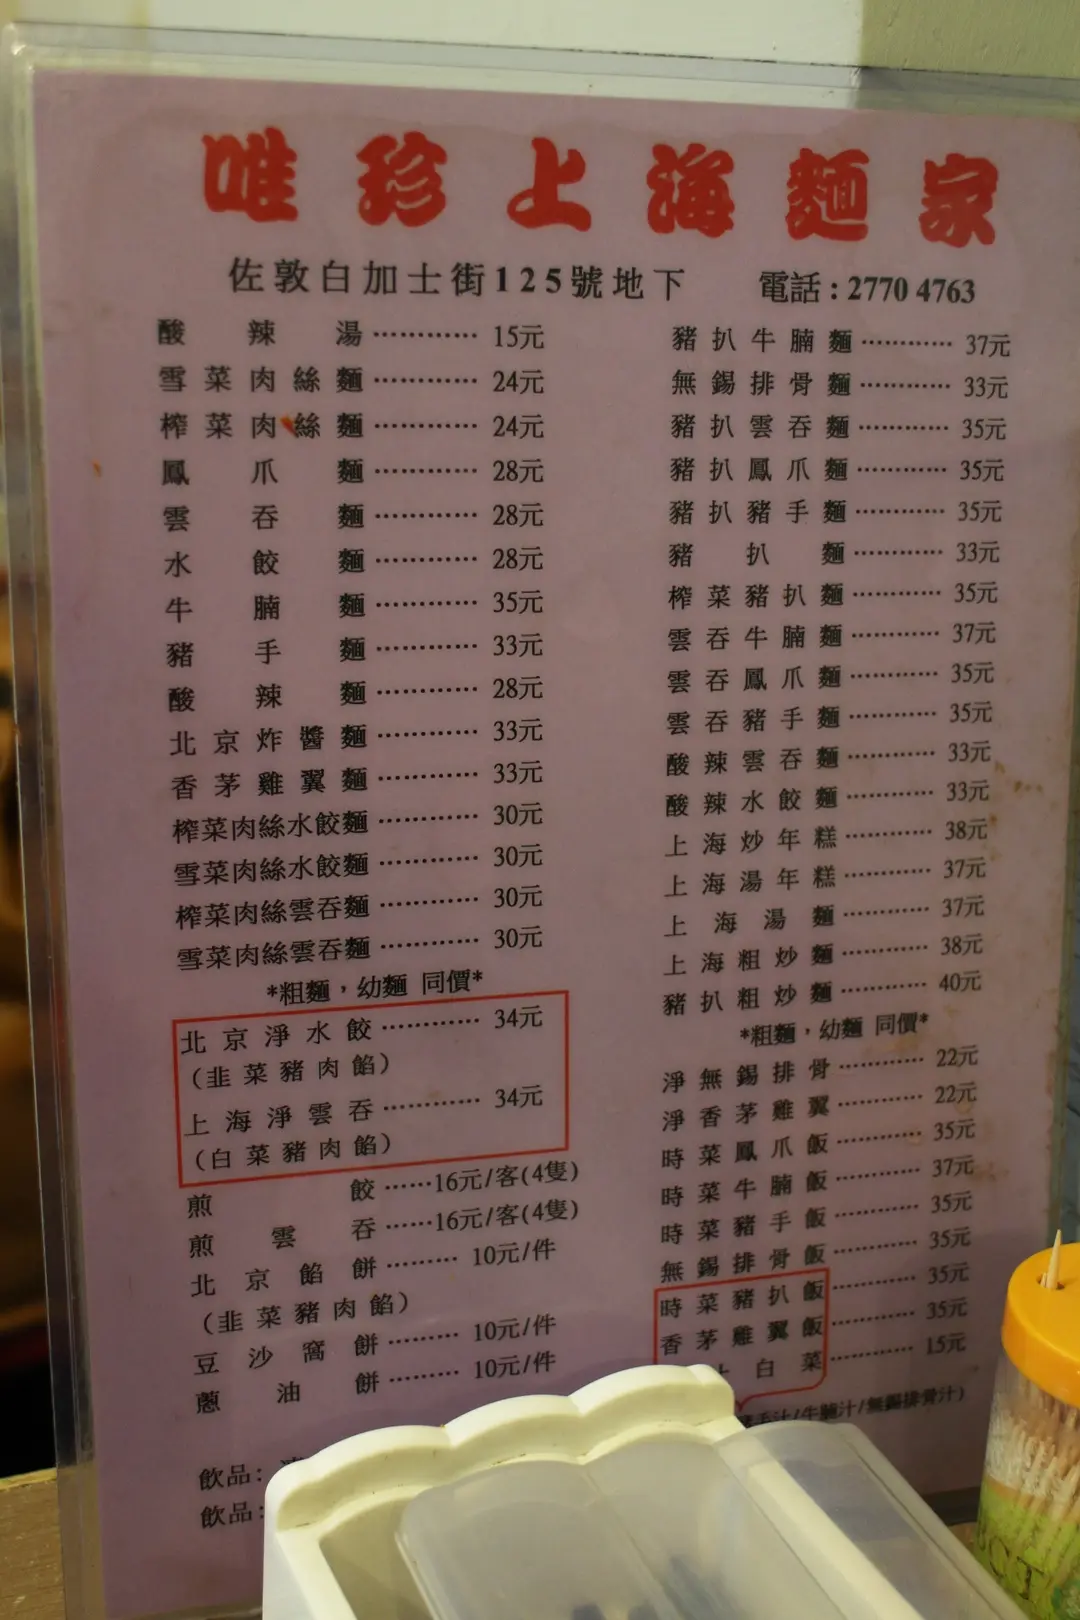 唯珍上海麵家
佐敦白加士街125號地下 電話:2770 4763
酸辣湯………… 15元
雪菜肉絲麵………… 24元
榨菜肉絲麵………… 24元
鳳爪麵………… 28元
雲吞麵………… 28元
水餃麵………… 28元
牛腩麵………… 35元
豬手麵………… 33元
酸辣麵………… 28元
北京炸醬麵………… 33元
香茅雞翼麵………… 33元
榨菜肉絲水餃麵………… 30元
雪菜肉絲水餃麵………… 30元
榨菜肉絲雲吞麵………… 30元
雪菜肉絲雲吞麵………… 30元
*粗麵,幼麵 同價*
北京淨水餃………… 34元
(韭菜豬肉餡)
上海淨雲吞………… 34元
(白菜豬肉餡)
煎餃……16元/客(4隻)
煎雲吞……16元/客(4隻)
北京餡餅……… 10元/件
(韭菜豬肉餡)
豆沙窩餅……… 10元/件
蔥油餅……… 10元/件
飲品:
飲品:
豬扒牛腩麵………… 37元
無錫排骨麵………… 33元
豬扒雲吞麵………… 35元
豬扒鳳爪麵………… 35元
豬扒豬手麵………… 35元
豬扒麵………… 33元
榨菜豬扒麵………… 35元
雲吞牛腩麵………… 37元
雲吞鳳爪麵………… 35元
雲吞豬手麵………… 35元
酸辣雲吞麵………… 33元
酸辣水餃麵………… 33元
上海炒年糕………… 38元
上海湯年糕………… 37元
上海湯麵………… 37元
上海粗炒麵………… 38元
豬扒粗炒麵………… 40元
*粗麵,幼麵 同價*
淨無錫排骨………… 22元
淨香茅雞翼………… 22元
時菜鳳爪飯………… 35元
時菜牛腩飯………… 37元
時菜豬手飯………… 35元
無錫排骨飯………… 35元
時菜豬扒飯………… 35元
香茅雞翼飯………… 35元
白菜………… 15元
手汁/牛腩汁/無錫排骨汁)